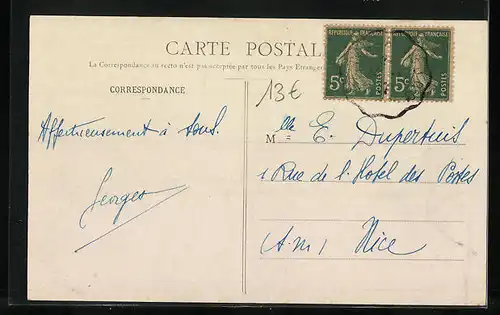 CARTE POSTALE
La Correspondance au recto n'est pas acceptée par tous les Pays Etrangers
RÉPUBLIQUE FRANÇAISE
5c
POSTES
RÉPUBLIQUE FRANÇAISE
5c
POSTES
13€
CORRESPONDANCE
Affectueusement à tous.
Georges
Mlle E. Dupertuis
1 Rue de l'Hotel des Postes
A.M. Nice